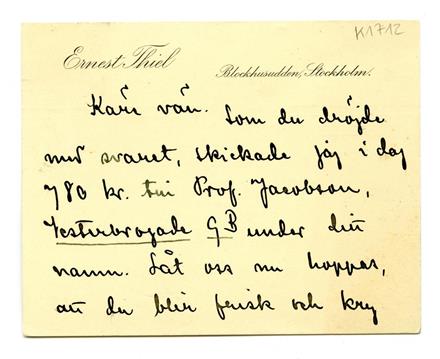 K1712
Ernest Thiel
Blockhusudden, Stockholm.
Käre vän. Som du dröjde
med svaret, skickade jag i dag
780 kr. till Prof. Jacobson,
Vesterbrogade 9B under ditt
namn. Låt oss nu hoppas,
att du blir frisk och kry